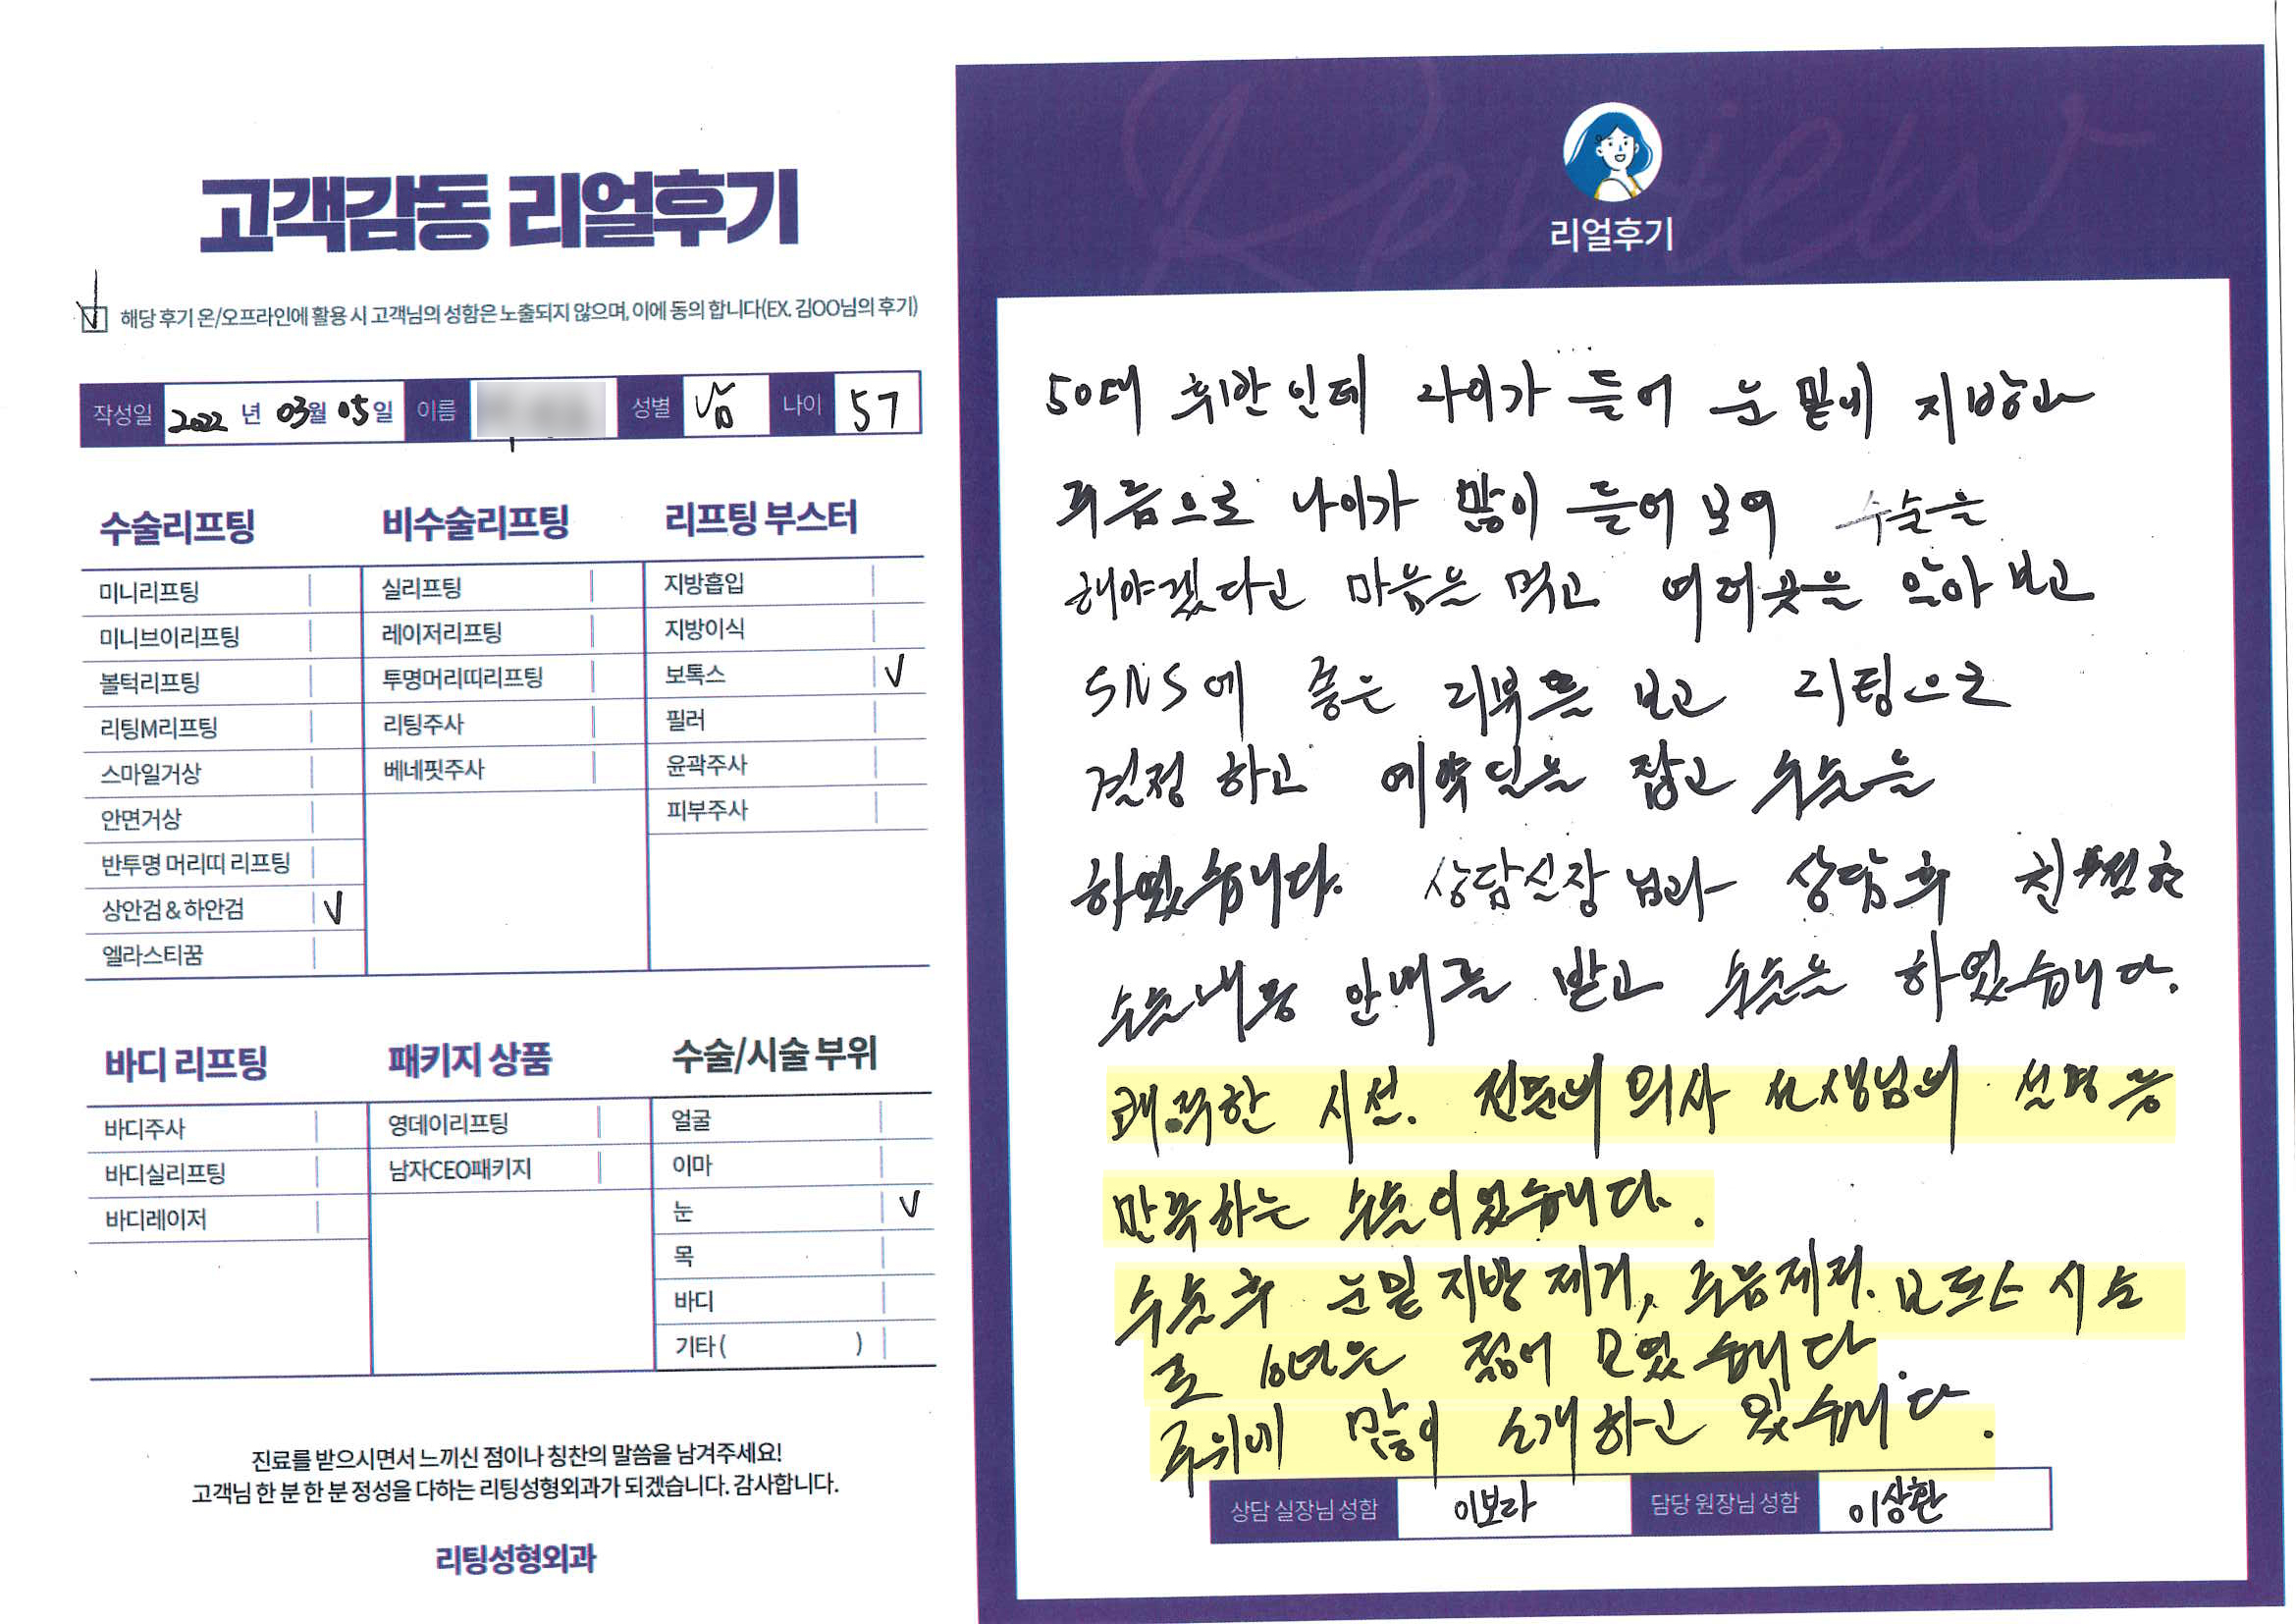 고객감동 리얼후기
해당 후기 온/오프라인에 활용 시 고객님의 성함은 노출되지 않으며, 이에 동의 합니다(EX. 김OO님의 후기)
작성일 2022 년 03월 05일 이름 성별 남 나이 57
수술리프팅
미니리프팅
미니브이리프팅
볼턱리프팅
리팅M리프팅
스마일거상
안면거상
반투명 머리띠 리프팅
상안검 & 하안검 √
엘라스티꿈
비수술리프팅
실리프팅
레이저리프팅
투명머리띠리프팅
리팅주사
베네핏주사
리프팅 부스터
지방흡입
지방이식
보톡스 √
필러
윤곽주사
피부주사
바디 리프팅
바디주사
바디실리프팅
바디레이저
패키지 상품
영데이리프팅
남자CEO패키지
수술/시술 부위
얼굴
이마
눈 √
목
바디
기타 ( )
진료를 받으시면서 느끼신 점이나 칭찬의 말씀을 남겨주세요!
고객님 한 분 한 분 정성을 다하는 리팅성형외과가 되겠습니다. 감사합니다.
리팅성형외과
Review
리얼후기
50대 후반인데 나이가 들어 눈 밑에 지방과
주름으로 나이가 많이 들어 보여 수술을
해야겠다고 마음을 먹고 여러곳을 알아 보고
SNS에 좋은 리뷰를 보고 리팅으로
결정 하고 예약일을 잡고 수술을
하였습니다. 상담실장님과 상담후 친절한
수술내용 안내를 받고 수술을 하였습니다.
쾌적한 시설. 전문의 의사 선생님의 설명 등
만족하는 수술이었습니다.
수술후 눈밑 지방 제거, 주름제거. 보톡스 시술
로 10년은 젊어 보였습니다.
주위에 많이 소개하고 있습니다.
상담 실장님 성함 이보라 담당 원장님 성함 이상환